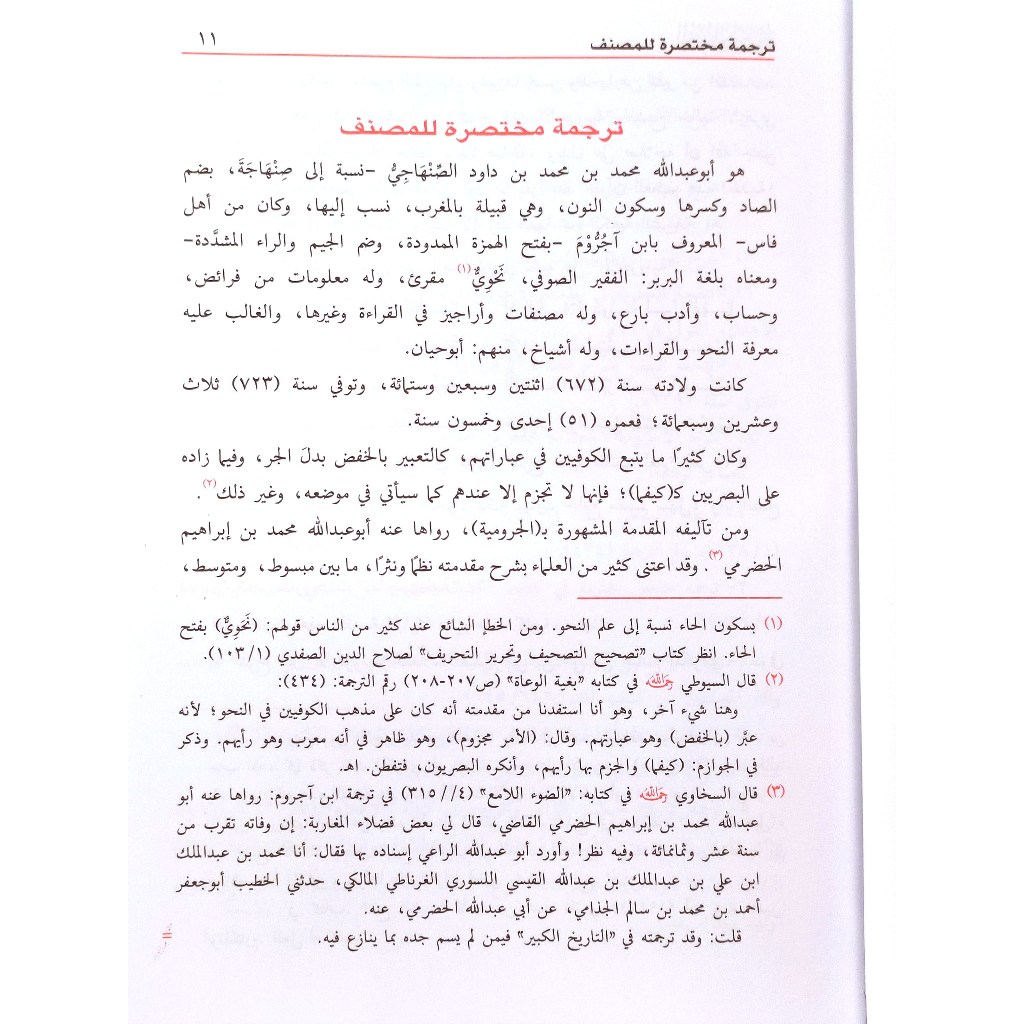 ترجمة مختصرة للمصنف
١١
ترجمة مختصرة للمصنف
هو أبوعبدالله محمد بن محمد بن داود الصِّنْهَاجِيُّ -نسبة إلى صِنْهَاجَةَ، بضم
الصاد وكسرها وسكون النون، وهي قبيلة بالمغرب، نسب إليها، وكان من أهل
فاس- المعروف بابن آجُرُّوْمَ -بفتح الهمزة الممدودة، وضم الجيم والراء المشدَّدة-
ومعناه بلغة البربر: الفقير الصوفي، نَحْوِيٌّ(١) مقرئ، وله معلومات من فرائض،
وحساب، وأدب بارع، وله مصنفات وأراجيز في القراءة وغيرها، والغالب عليه
معرفة النحو والقراءات، وله أشياخ، منهم: أبوحيان.
كانت ولادته سنة (٦٧٢) اثنتين وسبعين وستمائة، وتوفي سنة (٧٢٣) ثلاث
وعشرين وسبعمائة؛ فعمره (٥١) إحدى وخمسون سنة.
وكان كثيرًا ما يتبع الكوفيين في عباراتهم، كالتعبير بالخفض بدلَ الجر، وفيما زاده
على البصريين كـ(كيفما)؛ فإنها لا تجزم إلا عندهم كما سيأتي في موضعه، وغير ذلك(٢).
ومن تآليفه المقدمة المشهورة بـ(الجرومية)، رواها عنه أبوعبدالله محمد بن إبراهيم
الحضرمي(٣). وقد اعتنى كثير من العلماء بشرح مقدمته نظمًا ونثرًا، ما بين مبسوط، ومتوسط،
(١) بسكون الحاء نسبة إلى علم النحو. ومن الخطإ الشائع عند كثير من الناس قولهم: (نَحَوِيٌّ) بفتح
الحاء. انظر كتاب "تصحيح التصحيف وتحرير التحريف" لصلاح الدين الصفدي (١/١٠٣).
(٢) قال السيوطي رحمه الله في كتابه «بغية الوعاة» (ص٢٠٧-٢٠٨) رقم الترجمة: (٤٣٤):
وهنا شيء آخر، وهو أنا استفدنا من مقدمته أنه كان على مذهب الكوفيين في النحو؛ لأنه
عبَّر (بالخفض) وهو عبارتهم. وقال: (الأمر مجزوم)، وهو ظاهر في أنه معرب وهو رأيهم. وذكر
في الجوازم: (كيفما) والجزم بها رأيهم، وأنكره البصريون، فتفطن. اهـ.
(٣) قال السخاوي رحمه الله في كتابه: "الضوء اللامع" (٤//٣١٥) في ترجمة ابن آجروم: رواها عنه أبو
عبدالله محمد بن إبراهيم الحضرمي القاضي، قال لي بعض فضلاء المغاربة: إن وفاته تقرب من
سنة عشر وثمانمائة، وفيه نظر! وأورد أبو عبدالله الراعي إسناده بها فقال: أنا محمد بن عبدالملك
ابن علي بن عبدالملك بن عبدالله القيسي اللسوري الغرناطي المالكي، حدثني الخطيب أبوجعفر
أحمد بن محمد بن سالم الجذامي، عن أبي عبدالله الحضرمي، عنه.
قلت: وقد ترجمته في "التاريخ الكبير" فيمن لم يسم جده بما ينازع فيه.
=